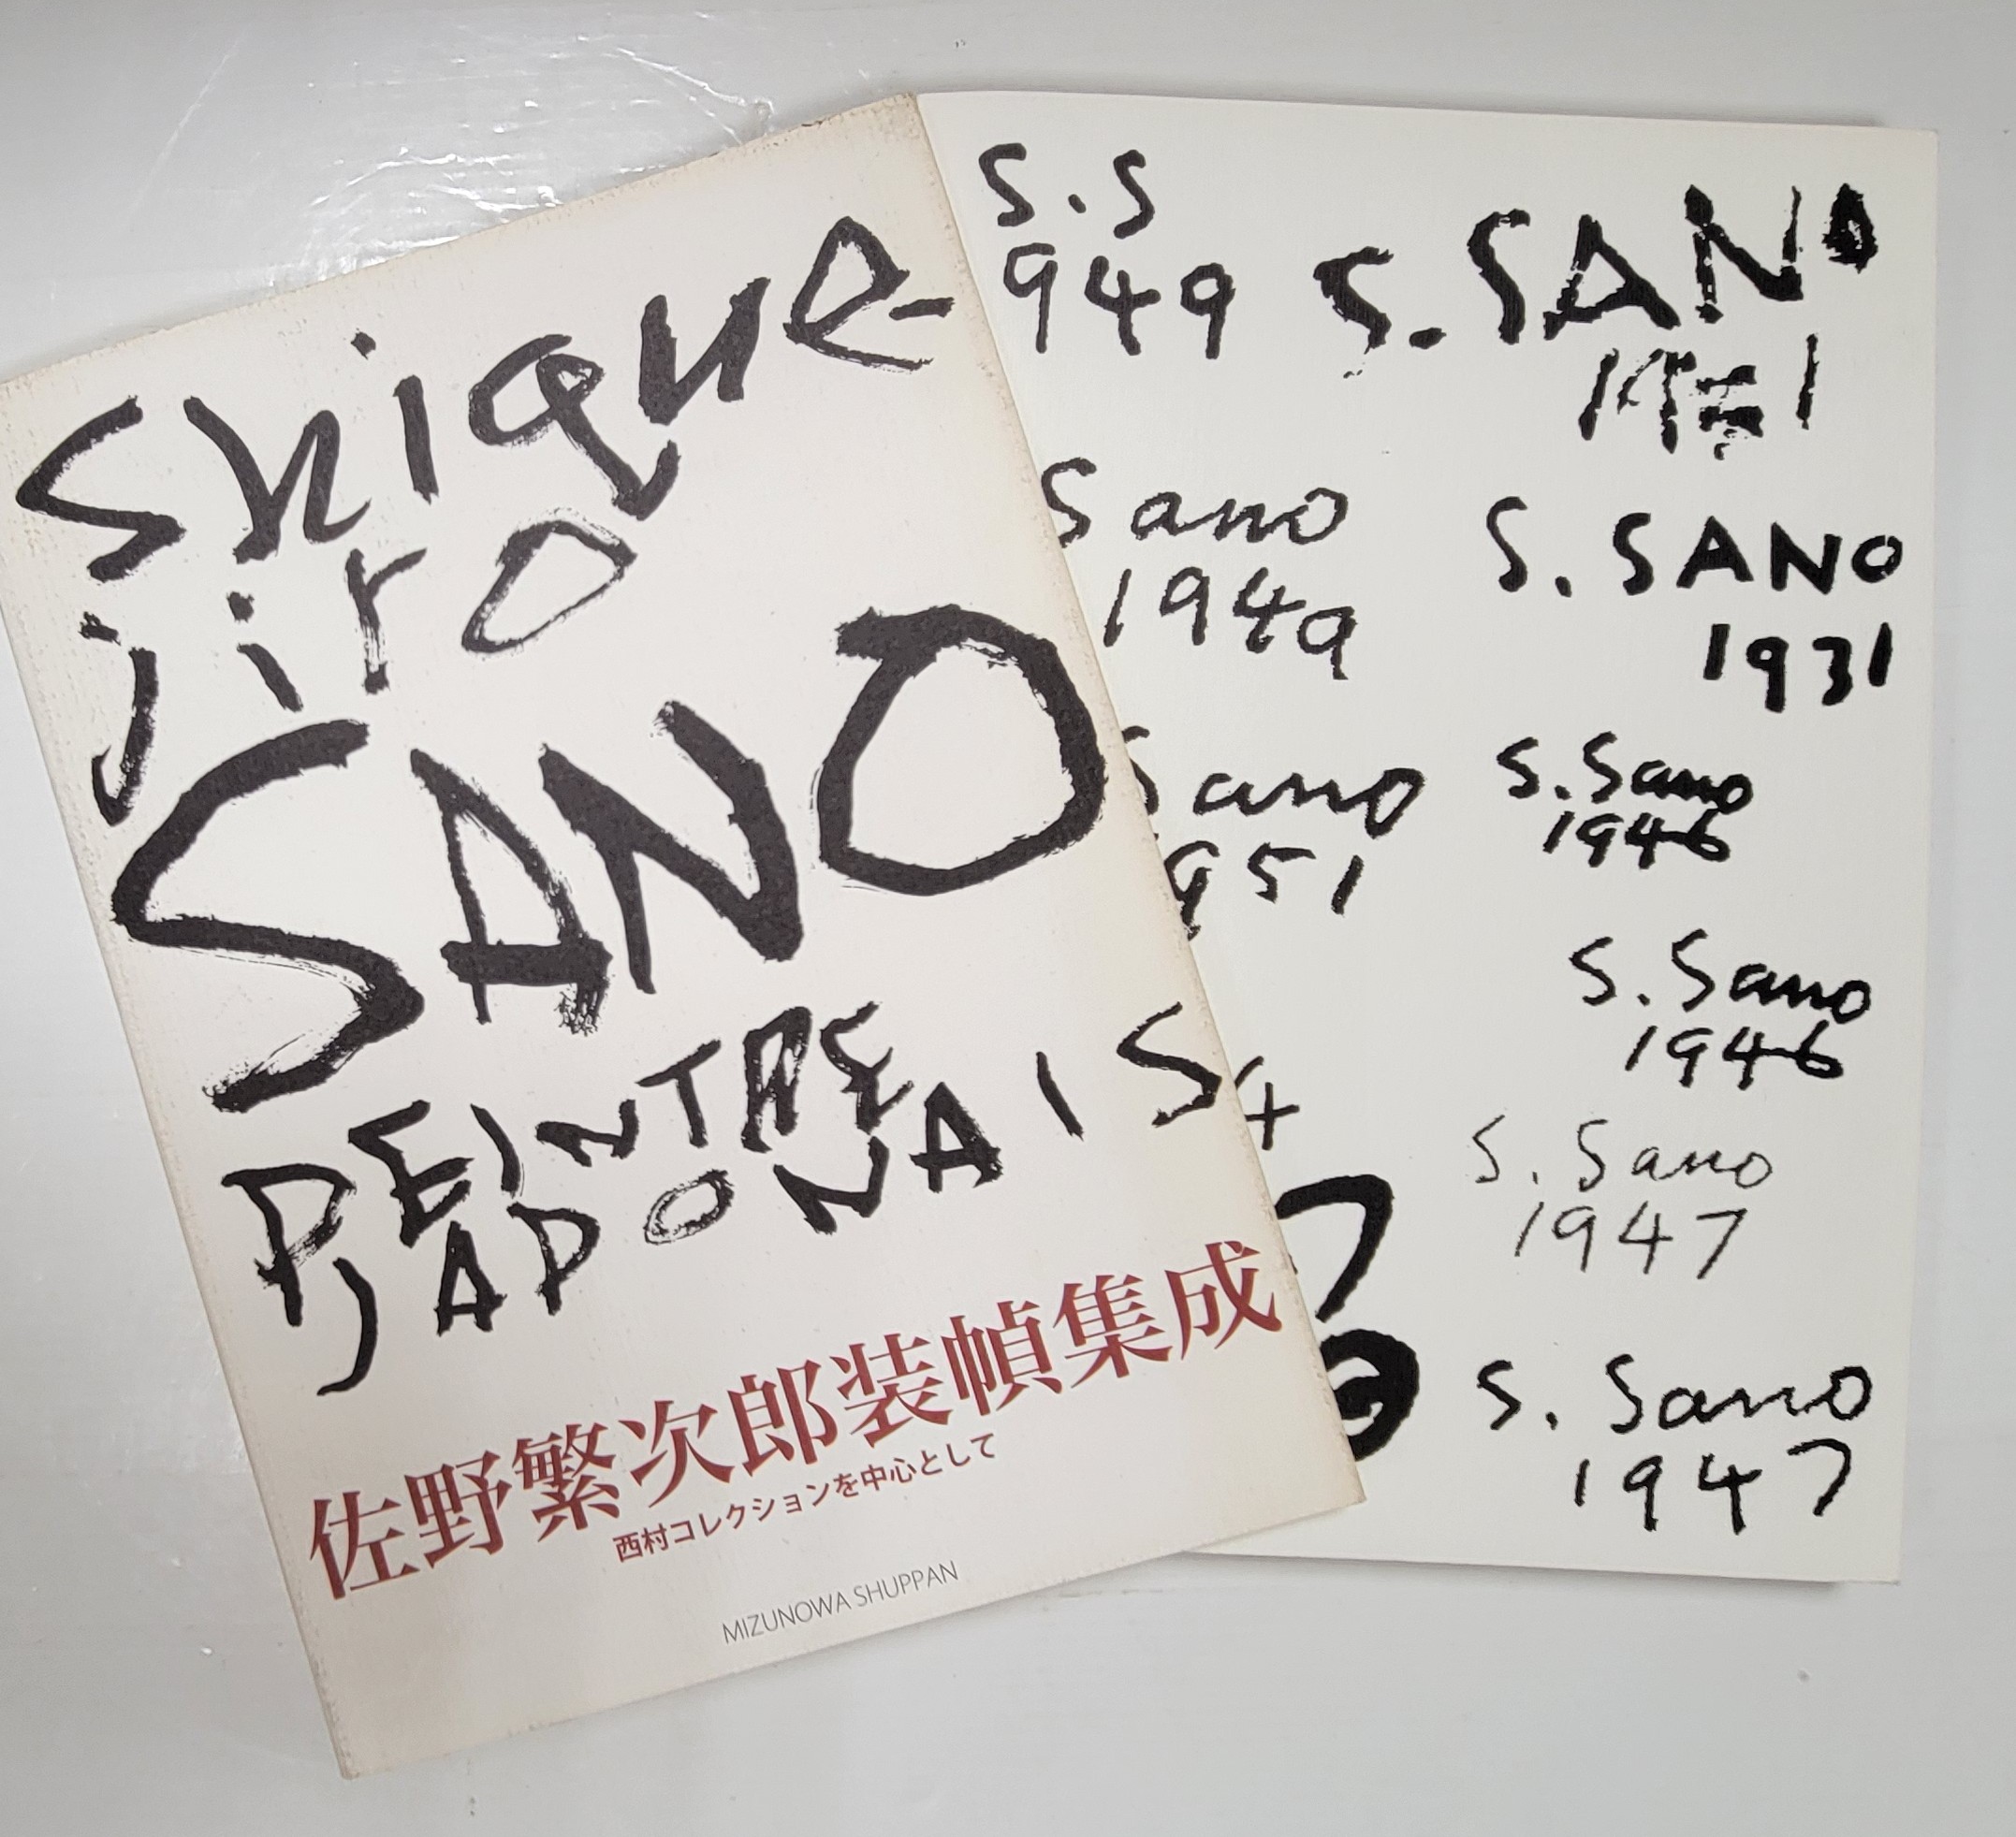 Shigue-
jiro
SANO
PEINTRE
JAPONAIS
佐野繁次郎装幀集成
西村コレクションを中心として
MIZUNOWA SHUPPAN
S.S
949
S. SANO
Sano
1949
S. SANO
1931
Sano
951
S. Sano
1946
S. Sano
1946
S. Sano
1947
7
S. Sano
1947